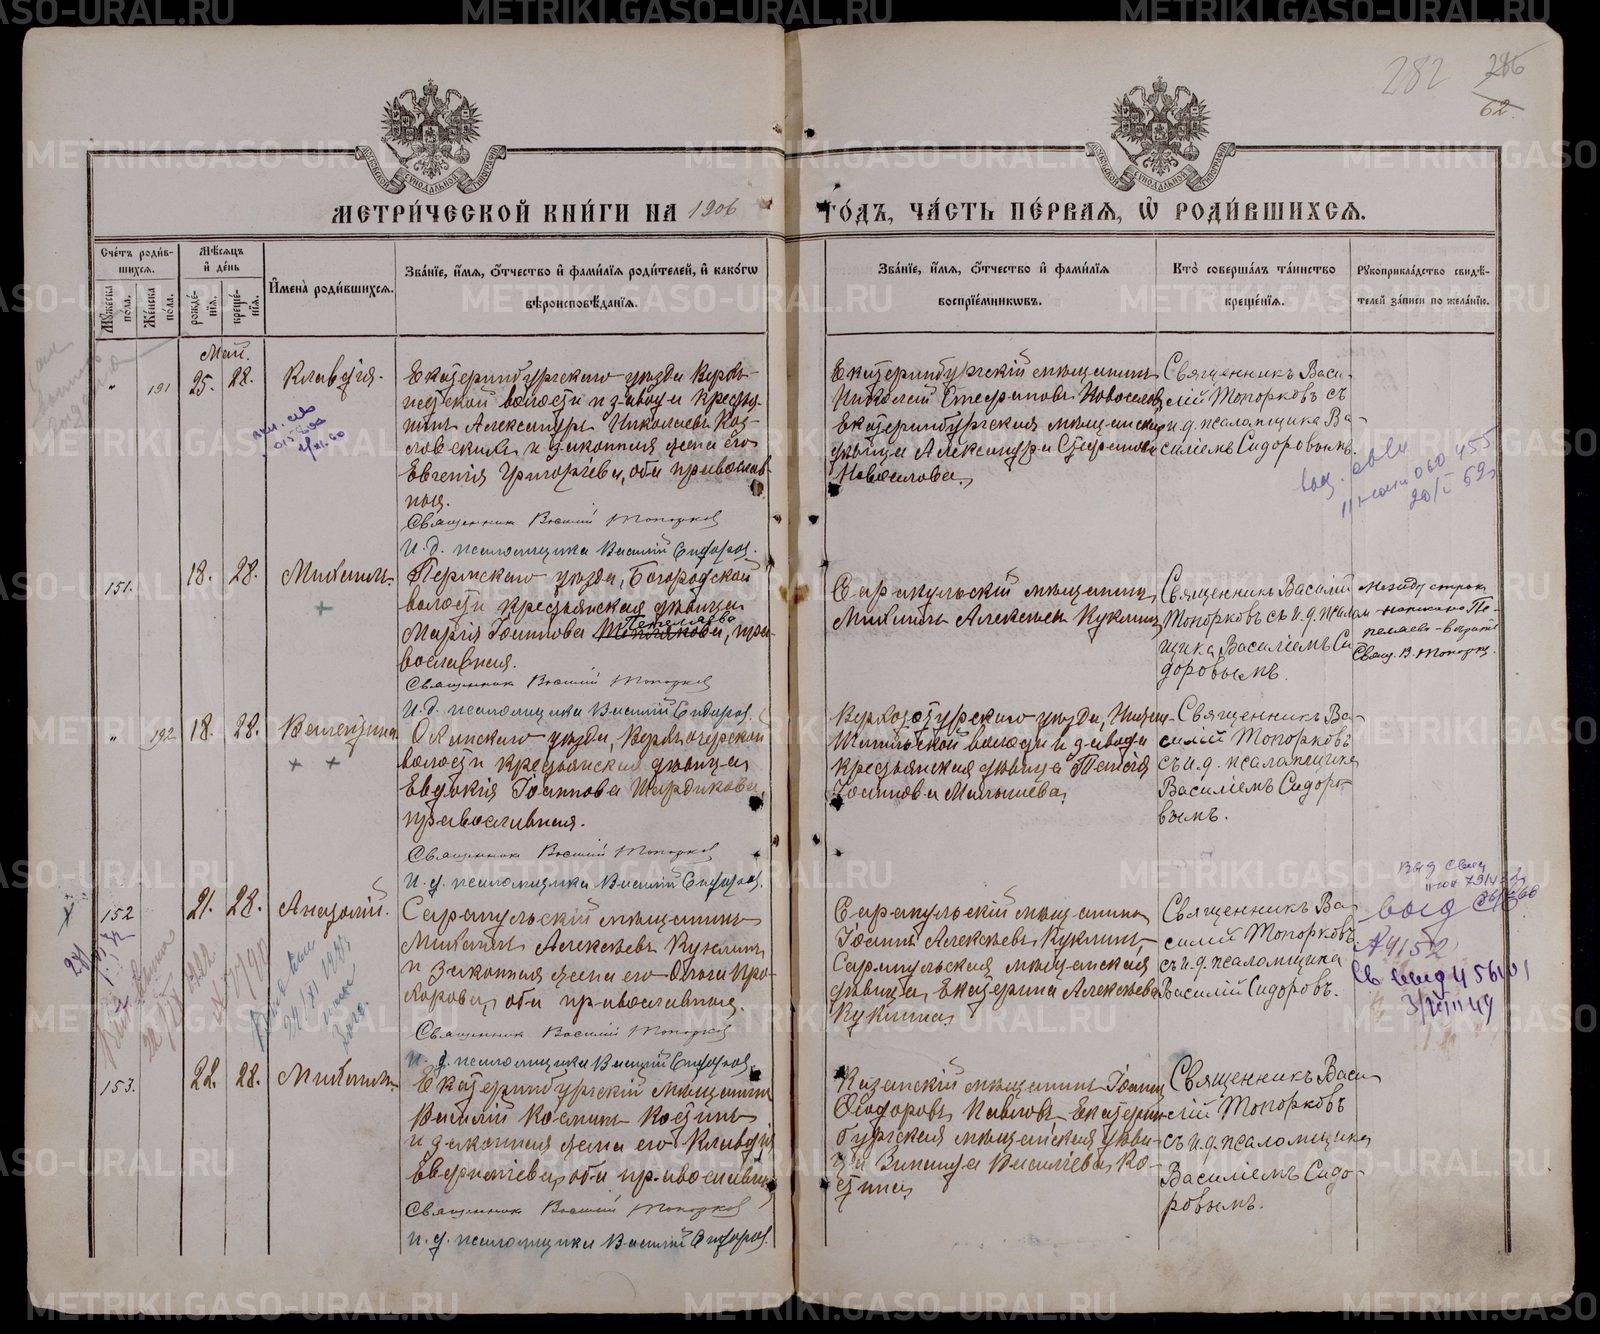 282
286
62.
МЕТРИ́ЧЕСКОЙ КНИ́ГИ НА 1906 ГО́ДЪ, ЧА́СТЬ ПЕ́РВАЯ, Ѡ҆ РОДИ́ВШИХСЯ.
Сче́тъ роди́вшихся.
Му́жеска по́ла.
Же́нска по́ла.
Мѣ́сяцъ и҆ де́нь
рожде́нїя.
креще́нїя.
И҆мена̀ роди́вшихся.
Зва́нїе, и҆́мя, ѻ҆́тчество и҆ фами́лїя роди́телей, и҆ како́гѡ вѣроисповѣ́данїя.
Зва́нїе, и҆́мя, ѻ҆́тчество и҆ фами́лїя воспрїе́мникѡвъ.
Кто̀ соверша́лъ та́инство креще́нїя.
Рукоприкла́дство свидѣ́телей за́писи по жела́нїю.
Май.
" 191 25. 28. Клавдія.
Екатеринбургскаго уѣзда Верхъ-
исетской волости и завода крестья-
нинъ Александръ Николаевъ Коз-
ловскихъ и законная жена его
Евгенія Григорьева, оба православ-
ныя.
Священникъ Василій Топорковъ
И. д. псаломщика Василій Сидоровъ.
Екатеринбургскій мѣщанинъ
Николай Стефановъ Новоселовъ
Екатеринбургская мѣщанская
дѣвица Александра Стефанова
Новоселова.
Священникъ Васи-
лій Топорковъ съ
и. д. псаломщика Ва-
силіемъ Сидоровымъ.
20/I 62
151. 18. 28. Михаилъ.
Пермскаго уѣзда, Богородской
волости крестьянская дѣвица
Марія Іоаннова Пепеляева, пра-
вославная.
Священникъ Василій Топорковъ
И. д. псаломщика Василій Сидоровъ.
Сарапульскій мѣщанинъ
Михаилъ Алексѣевъ Куклинъ
Священникъ Василій
Топорковъ съ и. д. псалом-
щика Василіемъ Си-
доровымъ.
Между строк
написано Пе-
пеляева - вѣрить
Свящ. В. Топорк.
" 192 18. 28. Валентина
Оханскаго уѣзда, Верхъ-очерской
волости крестьянская дѣвица
Евдокія Іоаннова Шардакова,
православная.
Священникъ Василій Топорковъ
И. д. псаломщика Василій Сидоровъ.
Верхотурскаго уѣзда, Нижне-
Тагильской волости и завода
крестьянская дѣвица Таисія
Іоаннова Малышева,
Священникъ Ва-
силій Топорковъ
съ и. д. псаломщика
Василіемъ Сидоро-
вымъ.
152 21. 28. Анатолій.
Сарапульскій мѣщанинъ
Михаилъ Алексѣевъ Куклинъ
и законная жена его Ольга Про-
хорова, оба православные.
Священникъ Василій Топорковъ
И. д. псаломщика Василій Сидоровъ.
Сарапульскій мѣщанинъ
Іоаннъ Алексѣевъ Куклинъ,
Сарапульская мѣщанская
дѣвица, Екатерина Алексѣева
Куклина,
Священникъ Ва-
силій Топорковъ
съ и. д. псаломщика
Василій Сидоровъ.
153. 22. 28. Михаилъ.
Екатеринбургскій мѣщанинъ
Василій Косминъ Костинъ
и законная жена его Клавдія
Евфиміева, оба православн.
Священникъ Василій Топорковъ
И. д. псаломщика Василій Сидоровъ.
Казанскій мѣщанинъ Іоаннъ
Ѳеодоровъ Павловъ, Екатерин-
бургская мѣщанская дѣви-
ца Зинаида Василіева Ко-
стина,
Священникъ Васи-
лій Топорковъ
съ и. д. псаломщика
Василіемъ Сидо-
ровымъ.